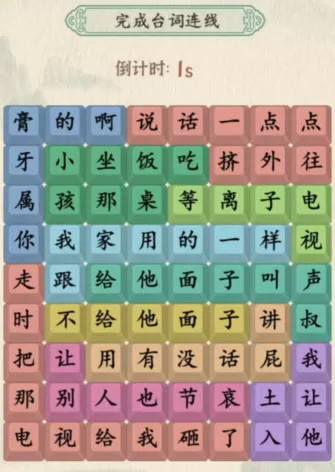 完成台词连线
倒计时: 1s
膏的啊说话一点点
牙小坐饭吃挤外往
属孩那桌等离子电
你我家用的一样视
走跟给他面子叫声
时不给他面子讲叔
把让用有没话屁我
那别人也节哀土让
电视给我砸了入他